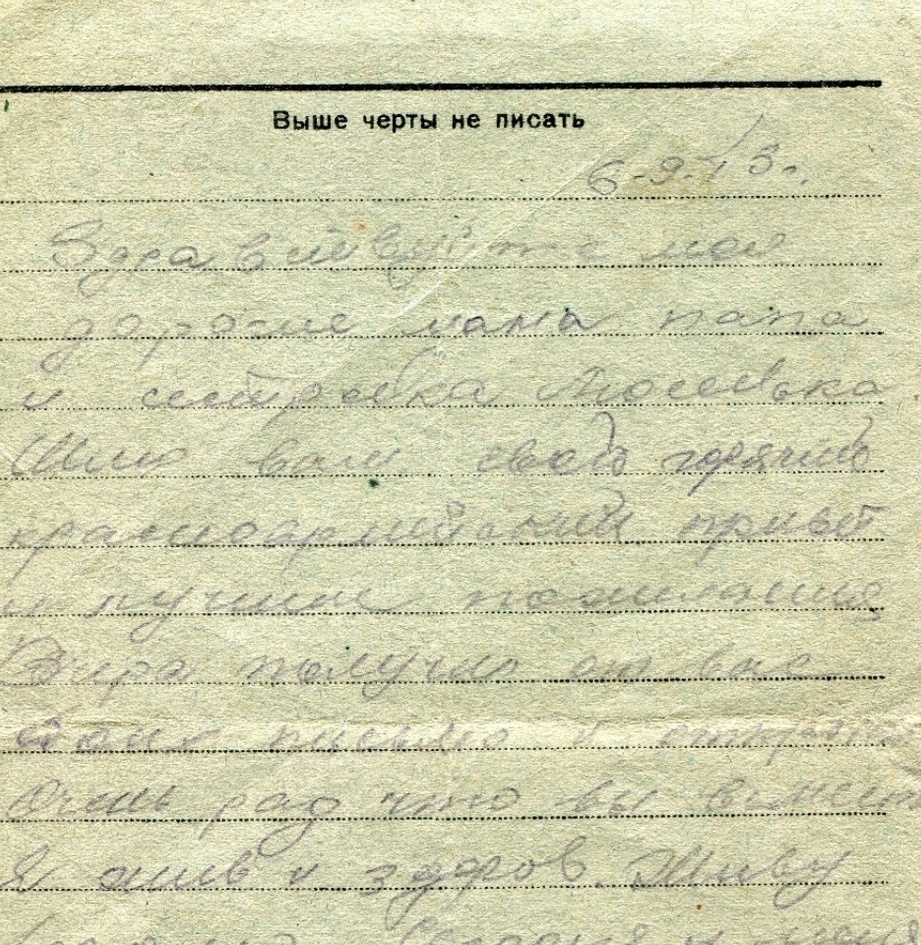 Выше черты не писать
6-9-43г.
Здравствуйте мои
дорогие мама папа
и сестрёнка Люсенька
Шлю вам свой горячий
красноармейский привет
и лучшие пожелания
Вчера получил от вас
письмо и
Очень рад что вы вместе
Я жив и здоров. Живу